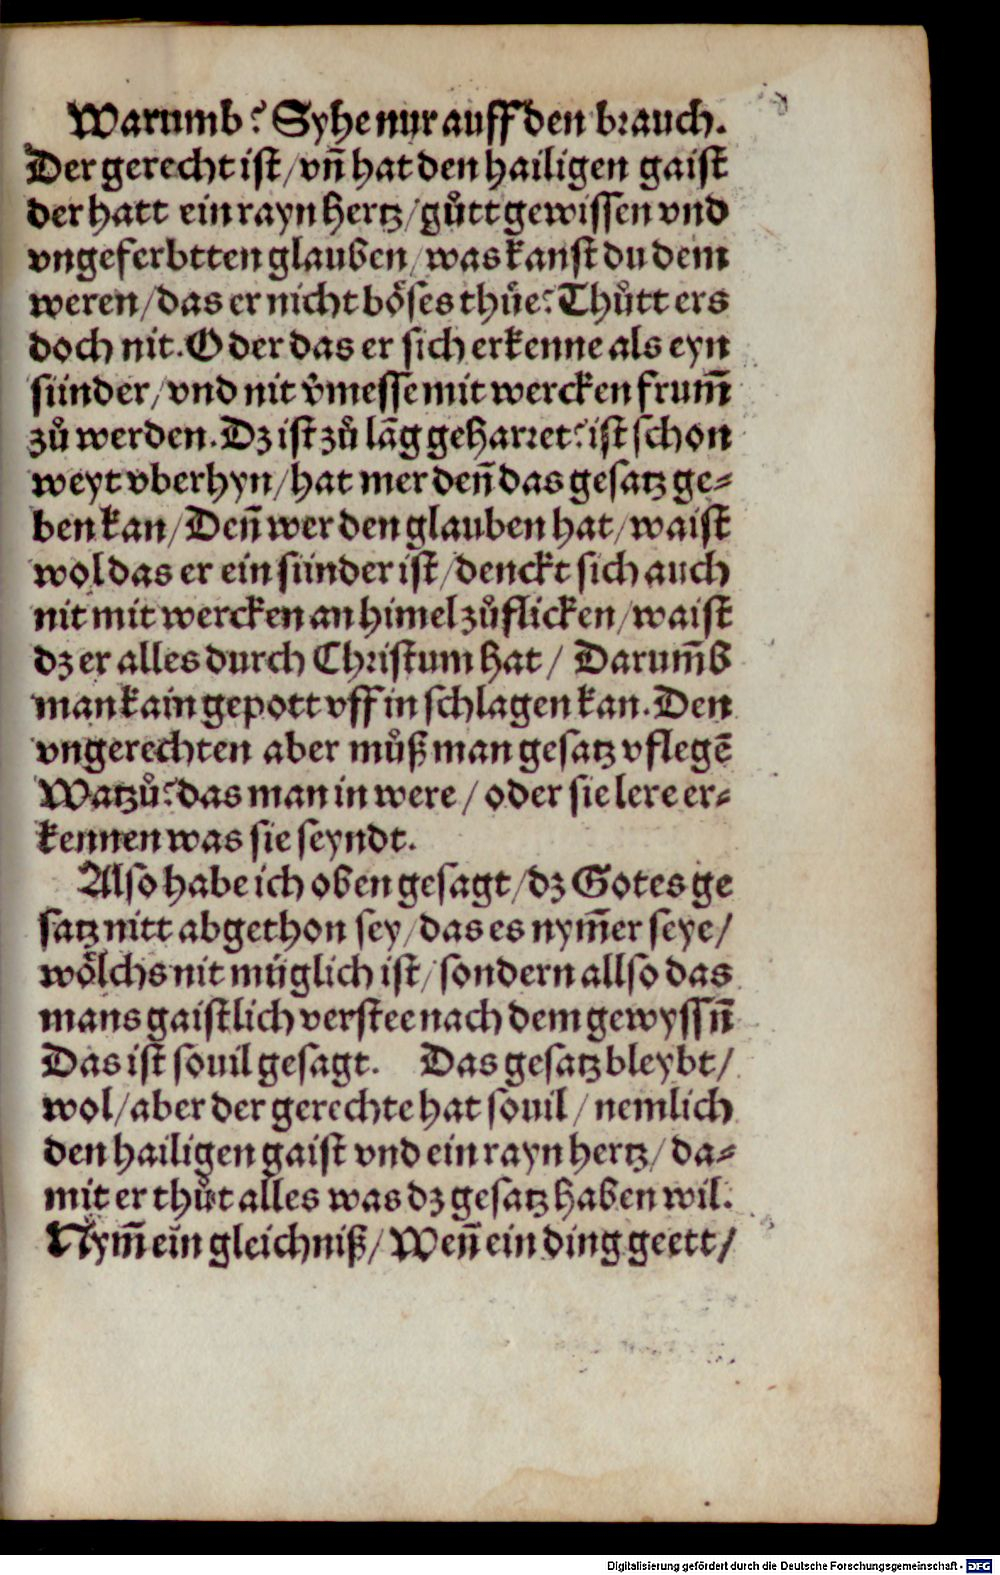 Warumb? Syhe nur auff den brauch.
Der gerecht ist/vñ hat den hailigen gaist
der hatt ein rayn hertz/gůtt gewissen vnd
vngeferbtten glauben/was kanst du dem
weren/das er nicht böses thüe? Thůtt ers
doch nit. Oder das er sich erkenne als eyn
sünder/vnd nit v̉messe mit wercken frum̃
zů werden. Dz ist zů lãg geharret? ist schon
weyt vberhyn/hat mer deñ das gesatz ge⸗
ben kan/Deñ wer den glauben hat/waist
wol das er ein sünder ist/denckt sich auch
nit mit wercken an himel zůflicken/waist
dz er alles durch Christum hat/ Darum̃b
man kain gepott vff in schlagen kan. Den
vngerechten aber můß man gesatz vflegẽ
Watzů? das man in were/ oder sie lere er⸗
kennen was sie seyndt.
Also habe ich oben gesagt/dz Gotes ge
satz nitt abgethon sey/das es nym̃er seye/
wölchs nit müglich ist/sondern allso das
mans gaistlich verstee nach dem gewyssñ
Das ist souil gesagt. Das gesatz bleybt/
wol/aber der gerechte hat souil/ nemlich
den hailigen gaist vnd ein rayn hertz/ da⸗
mit er thůt alles was dz gesatz haben wil.
Nym̃ ein gleichniß/ Weñ ein ding geett/
Digitalisierung gefördert durch die Deutsche Forschungsgemeinschaft - DFG